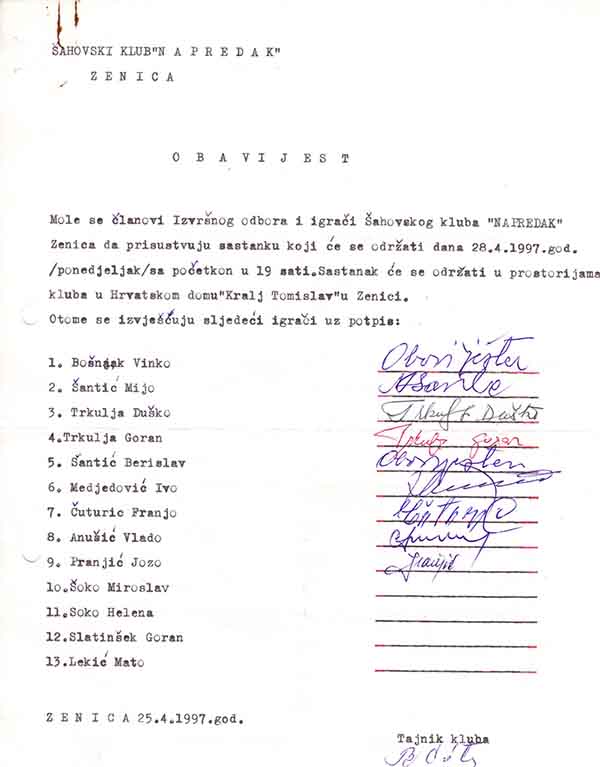 ŠAHOVSKI KLUB"N A P R E D A K"
Z E N I C A
O B A V I J E S T
Mole se članovi Izvršnog odbora i igrači Šahovskog kluba "NAPREDAK"
Zenica da prisustvuju sastanku koji će se održati dana 28.4.1997.god.
/ponedjeljak/sa početkon u 19 sati.Sastanak će se održati u prostorijama
kluba u Hrvatskom domu"Kralj Tomislav"u Zenici.
Otome se izvješćuju sljedeći igrači uz potpis:
1. Bošnjak Vinko Obaviješten
2. Šantić Mijo
3. Trkulja Duško Trkulja Duško
4.Trkulja Goran Trkulja Goran
5. Šantić Berislav Obavješten
6. Medjedović Ivo
7. Čuturic Franjo
8. Anušić Vlado
9. Pranjić Jozo
10.Šoko Miroslav
11.Soko Helena
12.Slatinšek Goran
13.Lekić Mato
Z E N I C A 25.4.1997.god.
Tajnik kluba